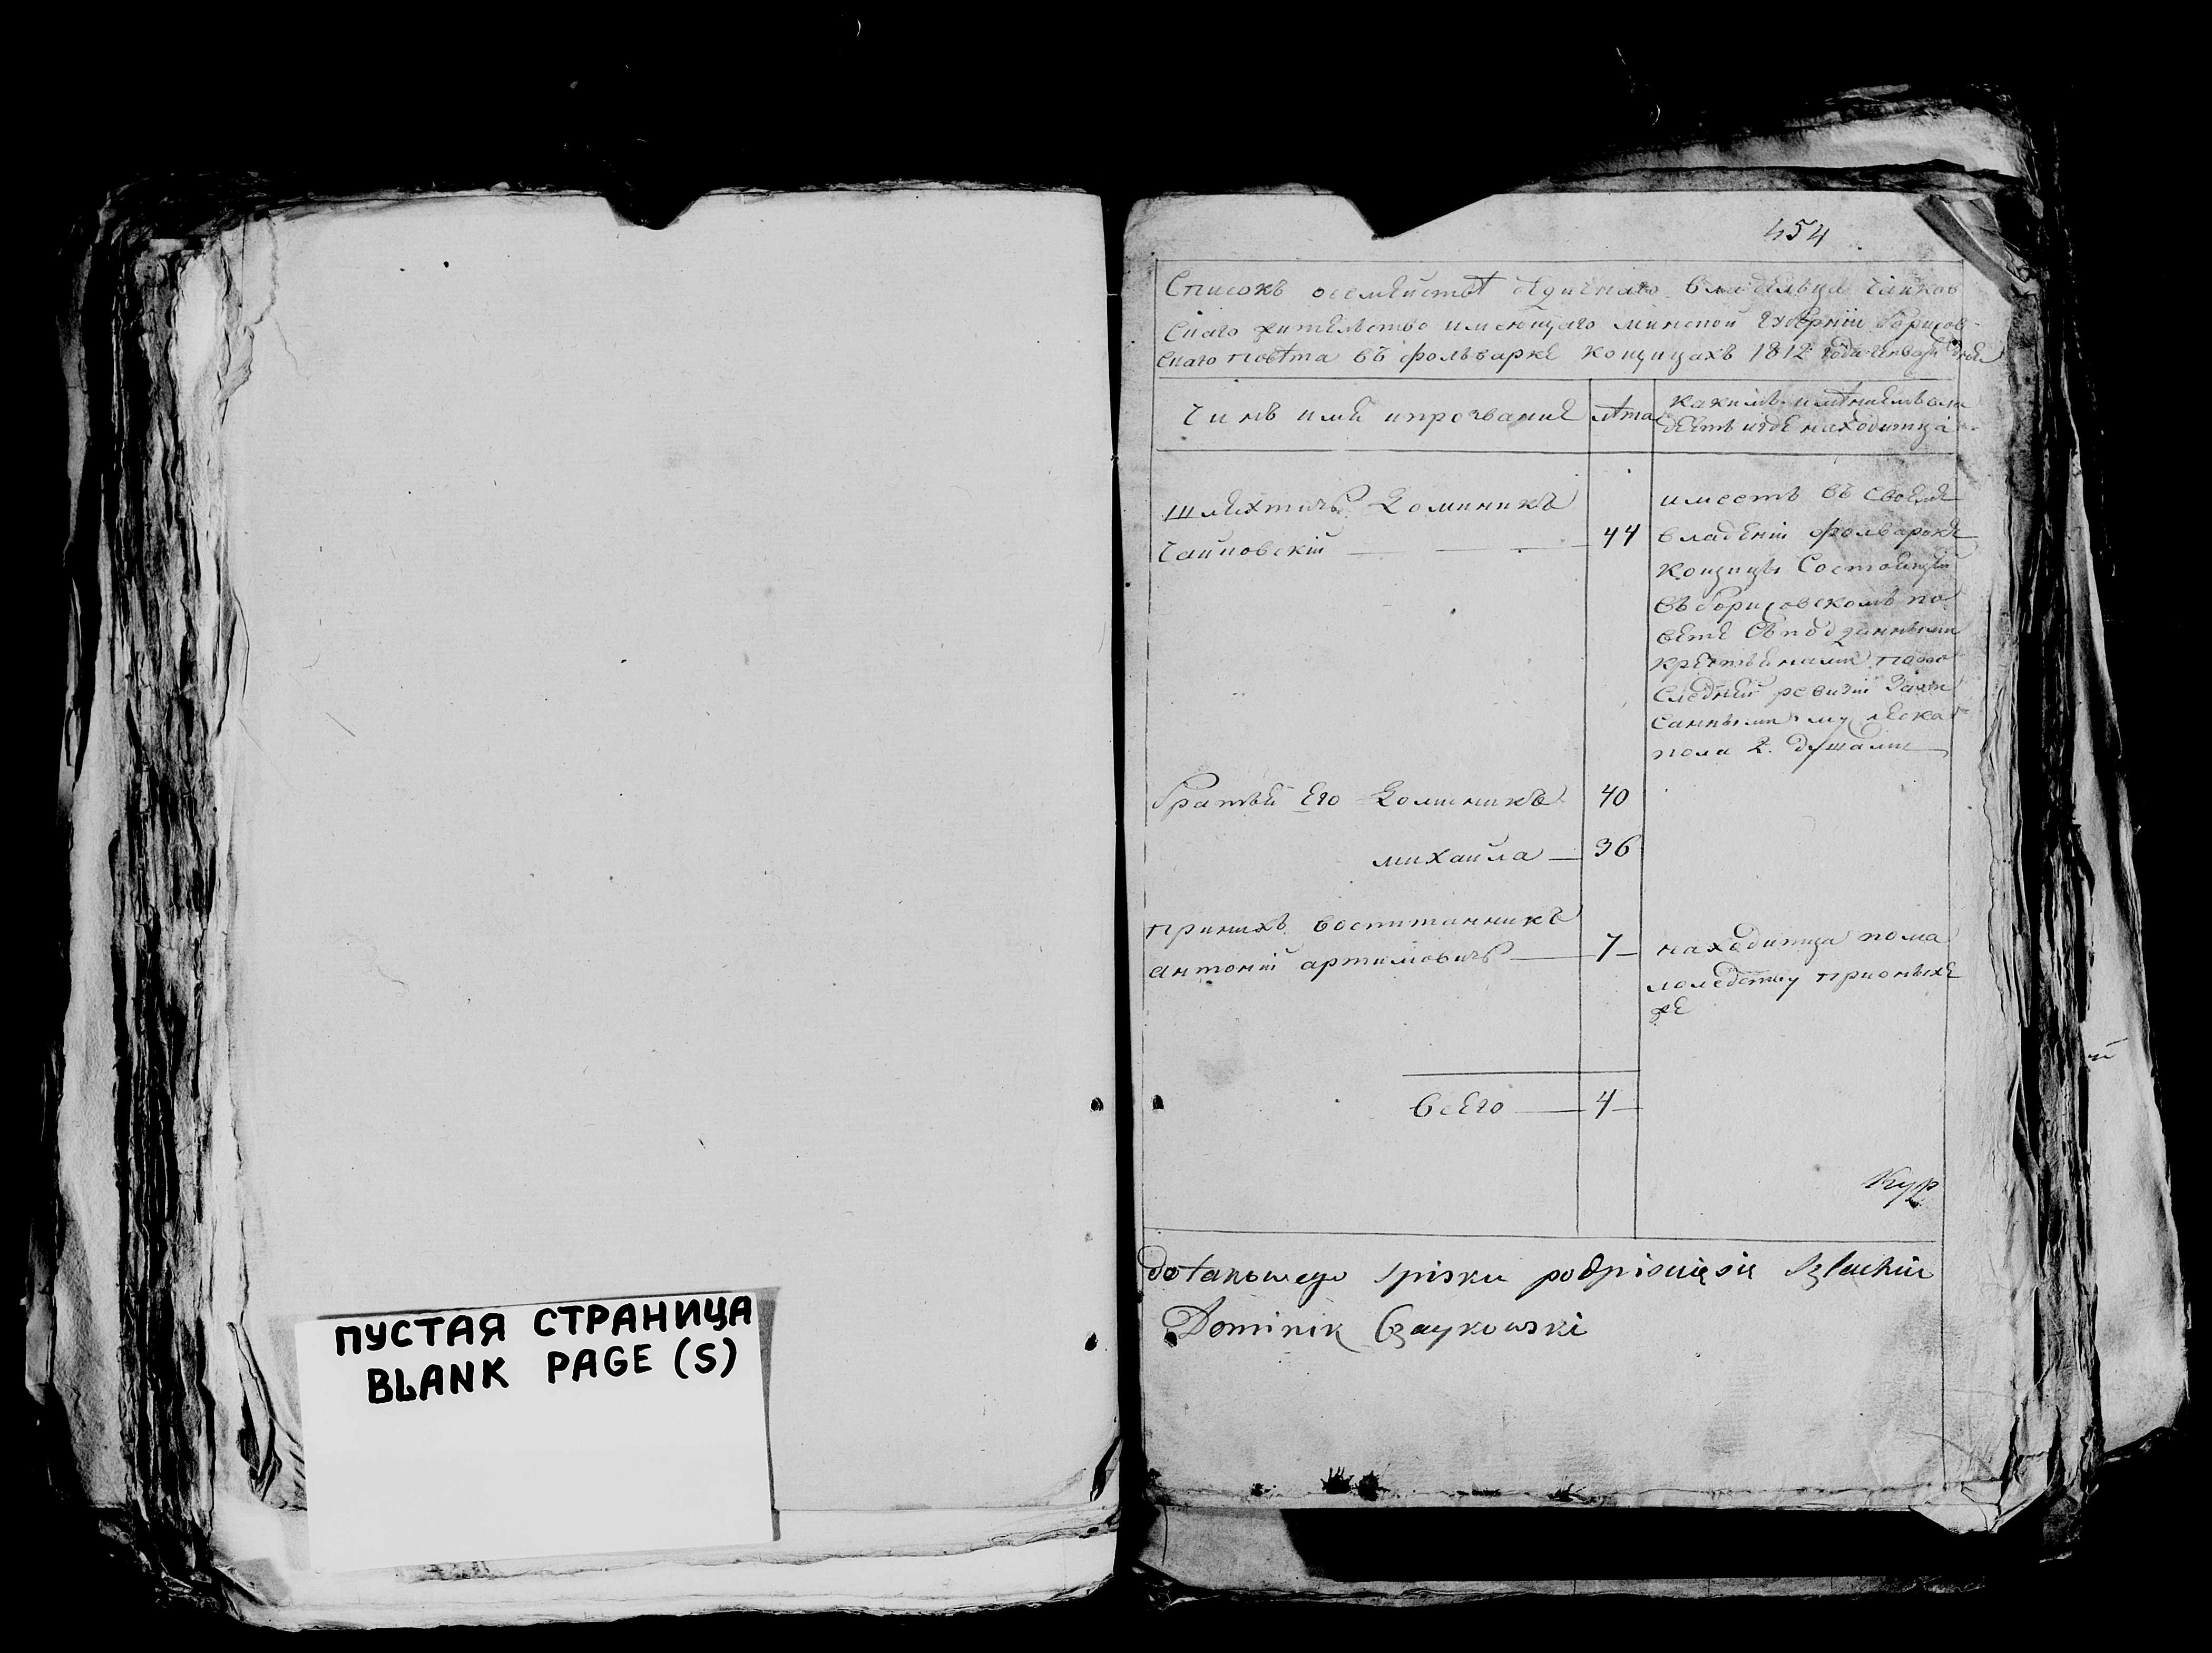 ПУСТАЯ СТРАНИЦА
BLANK PAGE (S)
454
Списокъ осемействѣ едичнаго владельца чайков
скаго жительство имеющаго минской губерніи борисов-
скаго повѣта въ фольварке кощицахъ 1812 года генваря дня
Чинъ имя ипрозвание
лѣта
какимъ имѣниемъ вла
деетъ игде находитца
шляхтичъ Доминикъ
чайковскій
44
имеетъ въ своемъ
владеніи фольварокъ
кощицы состоящій
въ борисовскомъ по
вете съ подданными
крестьянами по по
следней ревизіи запи
санными мужеска
пола 2. душами
братья Его Доминикъ
40
михайла
36
при нихъ воспитанникъ
антоній артимовичъ
7
находитца пома
лоледству при оныхъ
же
всего
4
Do takowego spisku podpisuię się Szlachcic
Dominik Czaykowski